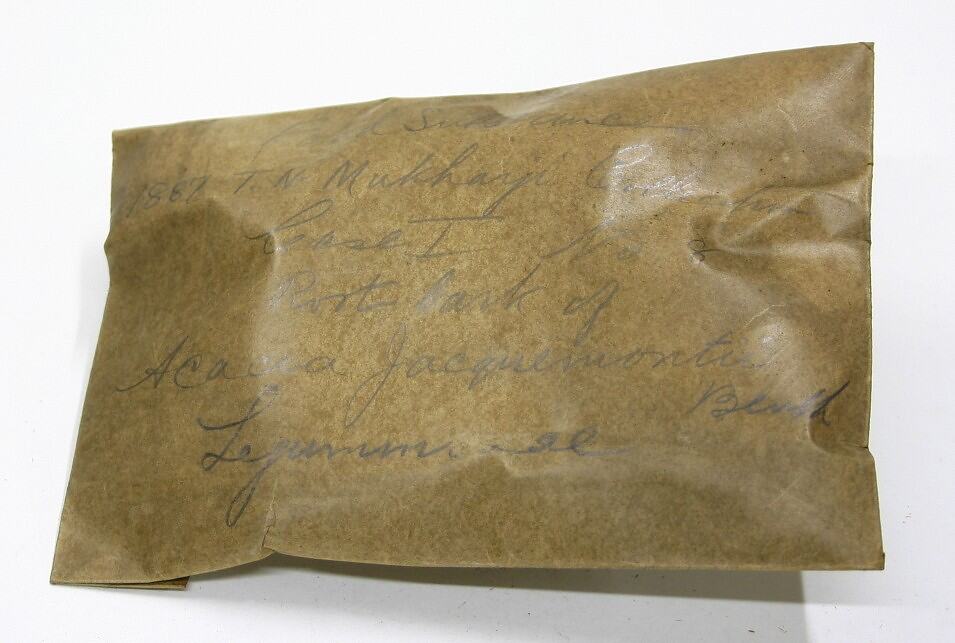 1887 T. N. Mukharji
Case I No 3
Root bark of
Acacia Jacquemontii
Benth
Leguminosae